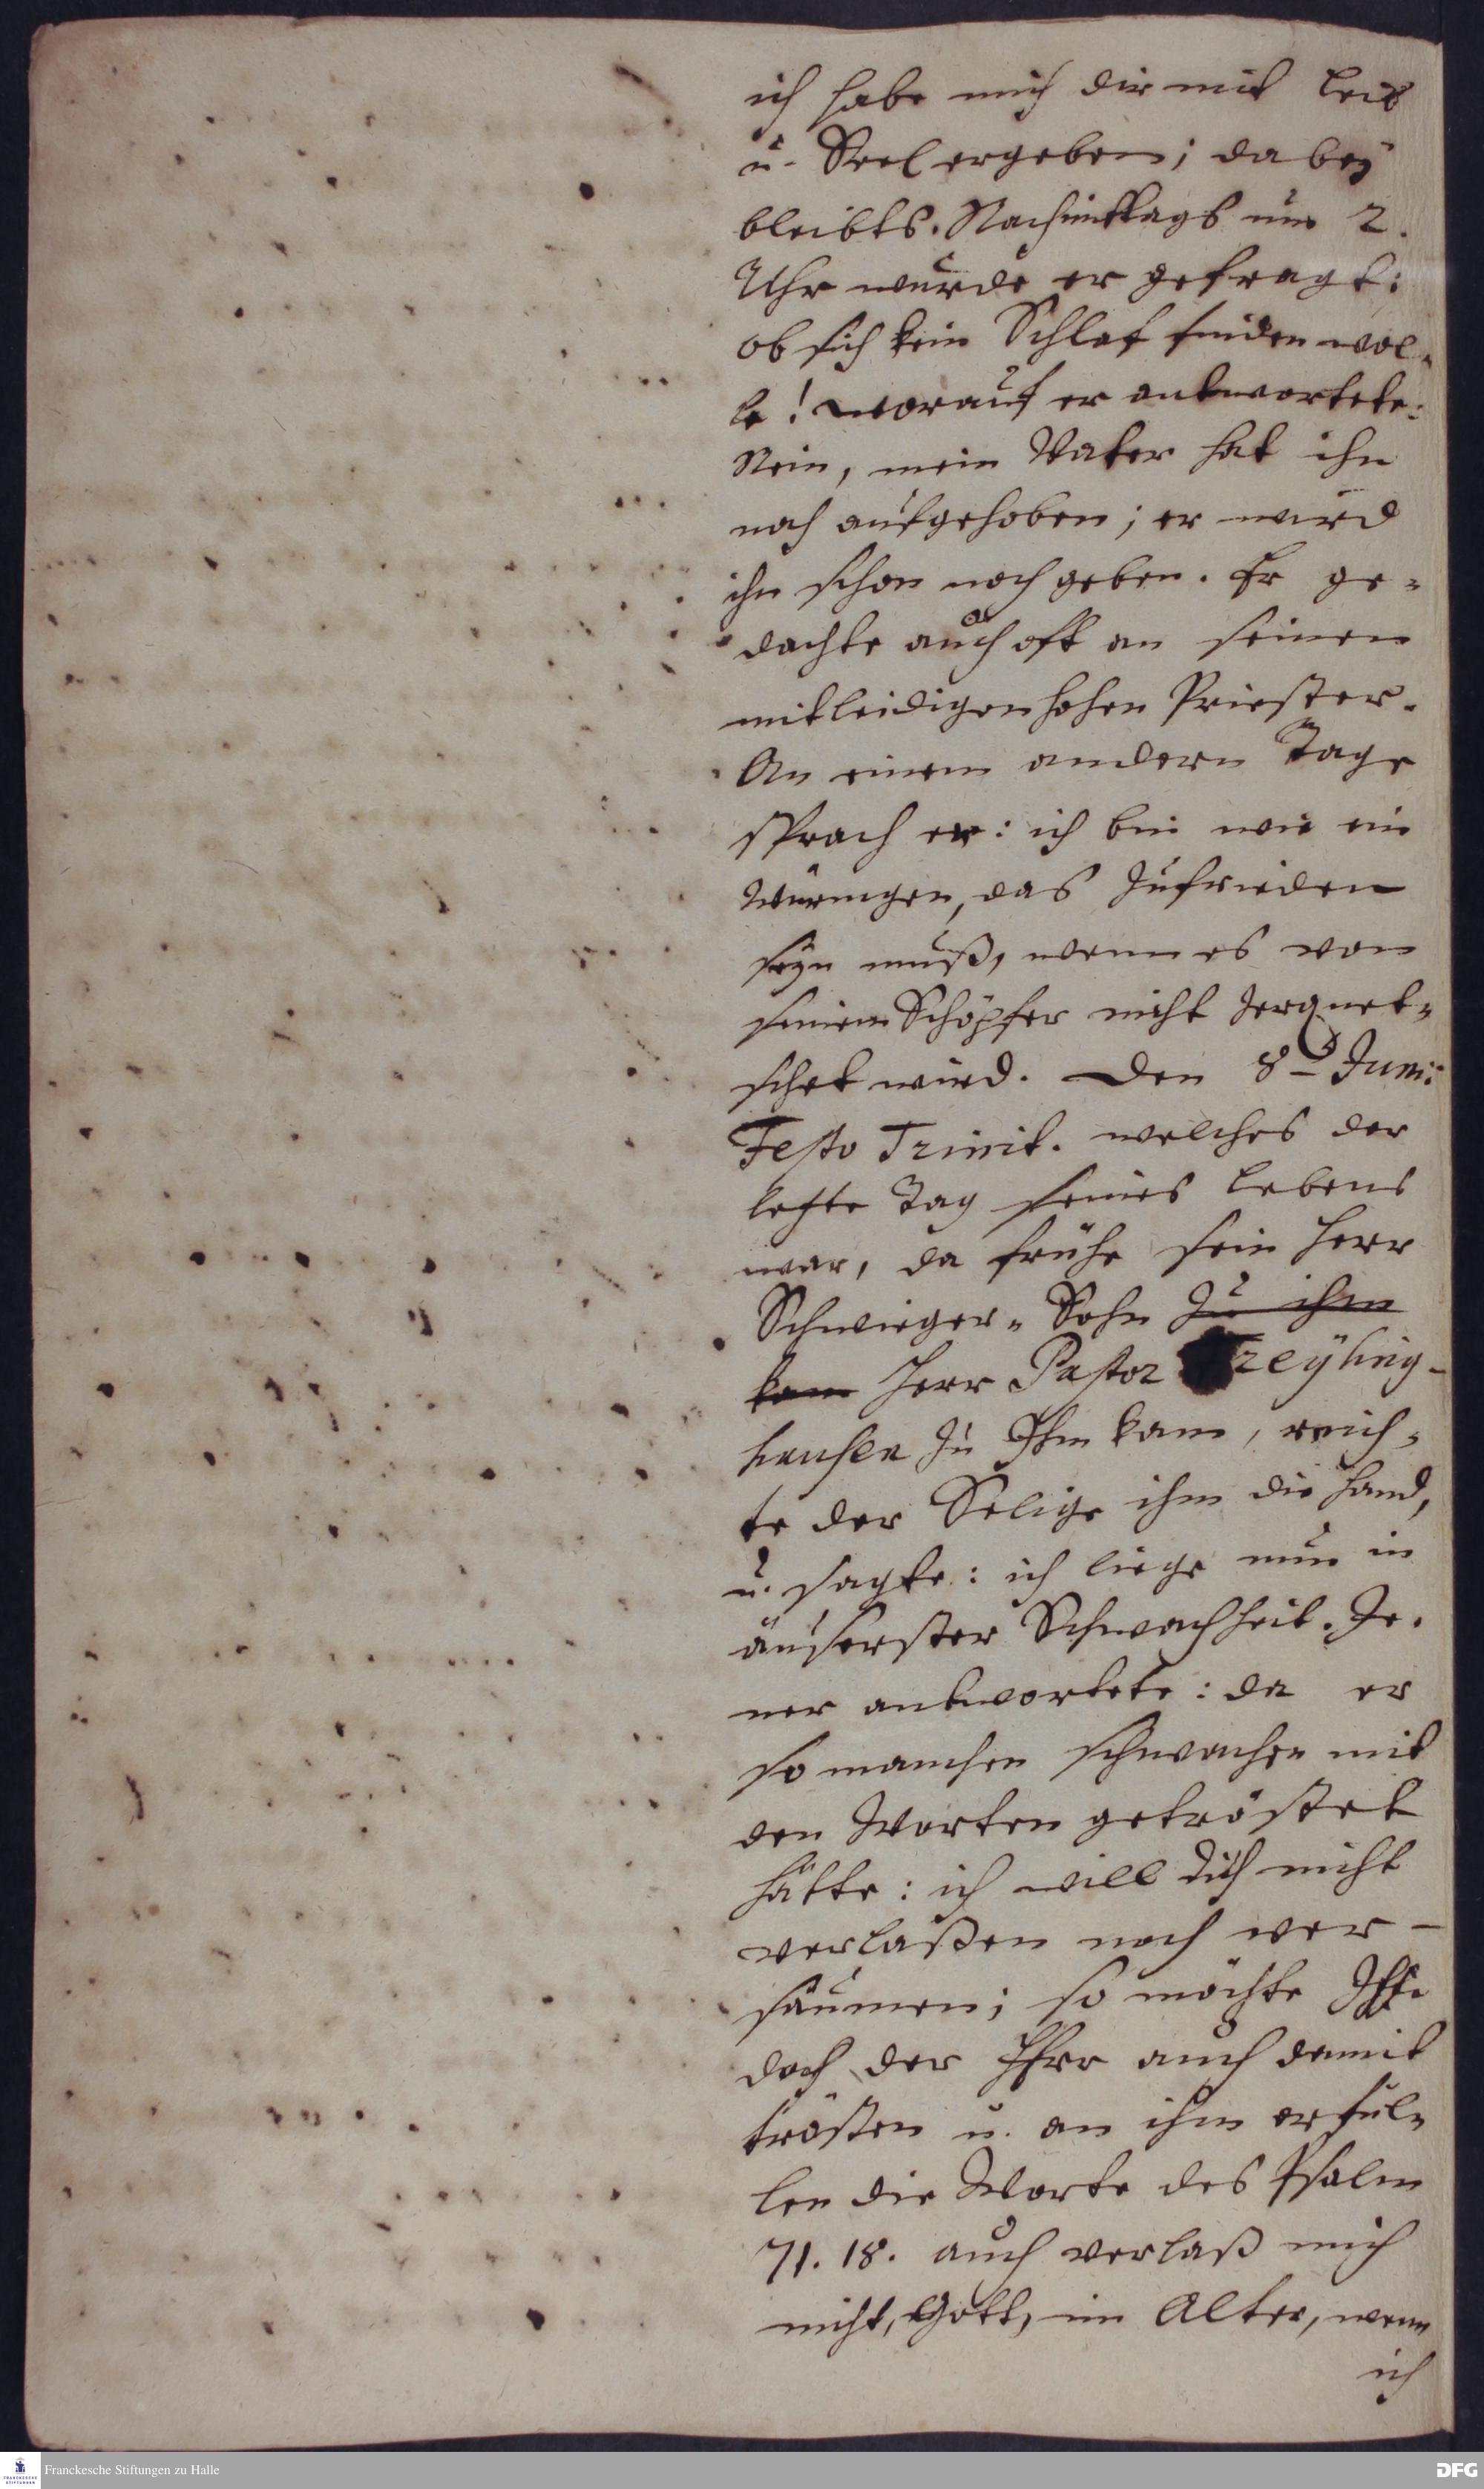 ich habe mich dir mit Leib
u. Seel ergeben; da beÿ
bleibts. Nachmittags um 2.
Uhr wurde er gefragt:
ob sich kein Schlaf finden wol-
le! worauf er antwortete:
Nein, mein Vater hat ihn
noch aufgehoben; er wird
ihn schon noch geben. Er ge-
dachte auch oft an seinen
mitleidigen hohen Priester.
An einem andern Tage
sprach er: ich bin wie ein
Würmgen, das zufrieden
seyn muß, wenn es von
seinem Schöpfer nicht zerquet-
schet wird. Den 8 Junii
Festo Trinit. welches der
lezte Tag seines Lebens
war, da frühe sein Herr
Schwieger-Sohn zu ihm
kam Herr Pastor Freÿling-
hausen zu Ihm kam, reich-
te der Selige ihm die Hand,
u. sagte: ich liege nun in
äuserster Schwachheit. Je-
ner antwortete: da er
so manchen schwachen mit
den Worten getröstet
hätte: ich will dich nicht
verlaßen noch ver-
säumen; so möchte Ihn
doch der HErr auch damit
trösten u. an ihm erfül-
len die Worte des Psalm
71. 18. auch verlaß mich
nicht, Gott, im Alter, wenn
ich
Franckesche Stiftungen zu Halle
DFG